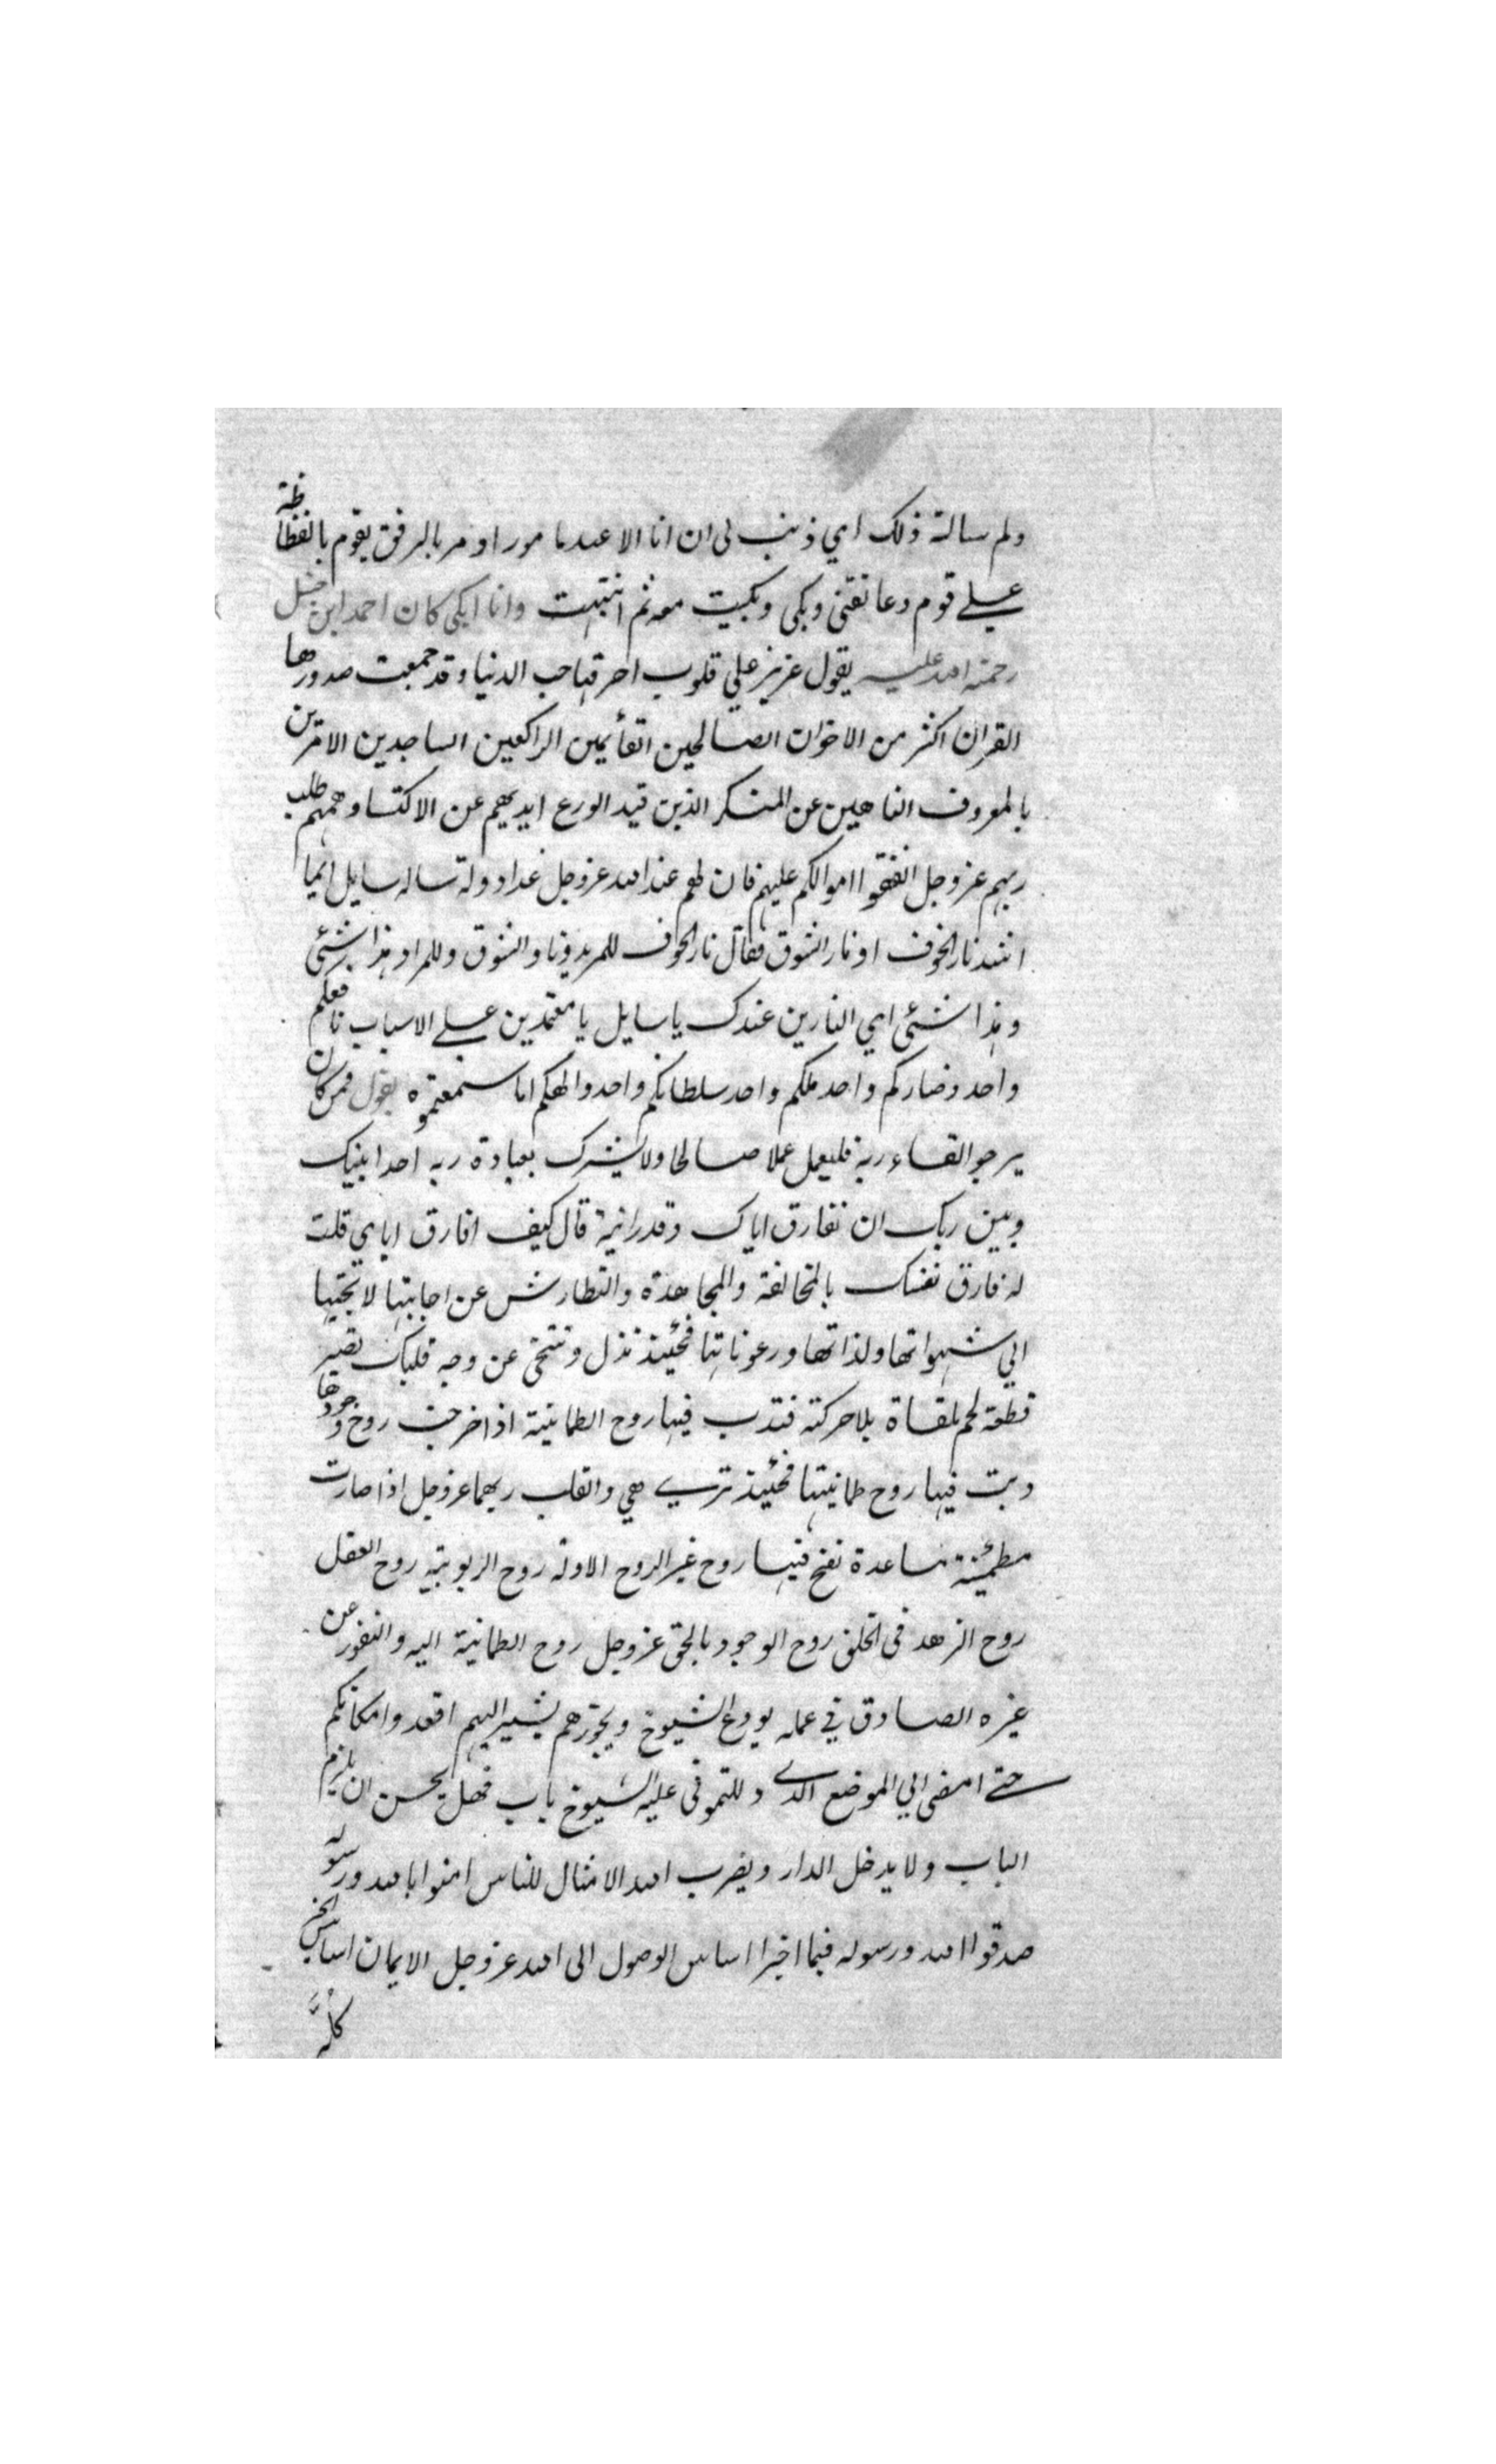 ولم سالته ذلك اي ذنب لي ان انا الا عبد مامور اومر بالرفق بقوم بالفظاظة
علي قوم دعانقني وبكى وبكيت معه ثم انتبهت وانا ابكي كان احمد ابن حنبل
رحمة الله عليه يقول عزيز علي قلوب احرقها حب الدنيا وقد جمعت صدورها
القران اكثر من الاخوان الصالحين القائمين الراكعين الساجدين الامرين
بالمعروف الناهين عن المنكر الذين قيد الورع ايديهم عن الاكتسا وهمهم طلب
ربهم عزوجل انفقوا اموالكم عليهم فان لهم عند الله عزوجل غدا دولة ساله سايل ايما
اشد نار الخوف او نار الشوق فقال نار الخوف للمريد ونا والشوق وللمراد هذا شئي
وهذا شئي اي النارين عندك يا سايل يا معتمدين علي الاسباب نافعكم
واحد وضاركم واحد ملكم واحد سلطانكم واحد والهكم اما سمعتموه يقول فمن كان
يرجوا لقاء ربه فليعمل عملا صالحا ولا يشرك بعبادة ربه احدا بينك
وبين ربك ان تفارق اياك وقد رايته قال كيف افارق اياي قلت
له فارق نفسك بالمخالفة والمجاهدة والتطارش عن اجابتها لا تجيبها
الي شهواتها ولذاتها ورعوناتها فحينئذ تذل وتنتحي عن وجه قلبك تصير
قطعة لحم ملقاة بلا حركته فتدب فيها روح الطمانينة اذا خرجت روح وجودها
دبت فيها روح طمانيتها فحينئذ تري هي والقلب ربهما عزوجل اذا صارت
مطمئنة مساعدة نفخ فيها روح غير الروح الاولة روح الربوبية روح العقل
روح الزهد في الخلق روح الوجود بالحق عزوجل روح الطمانية اليه والنفور عن
غيره الصادق في عمله يودع الشيوخ ويجوزهم يشير اليهم اقعدوا مكانكم
حتي امضى الي الموضع الذي دللتموني عليه الشيوخ باب فهل يحسن ان يلزم
الباب ولا يدخل الدار ويضرب الله الامثال للناس امنوا بالله ورسوله
صدقوا الله ورسوله فيما اخبرا اساس الوصول الى الله عزوجل الايمان اساس الخير
كله